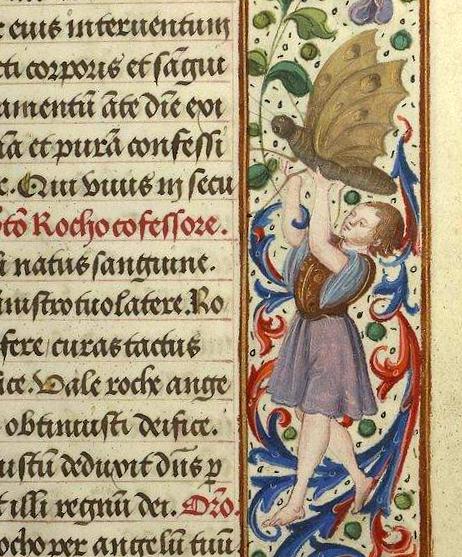 r eius interuentum
cti corporis et sangui
amentū āte diē exi
nā et purā confessi
e. Qui viuis in secu
tō Rocho cofessore.
natus sanguine.
inistro tuo latere. Ro
fere / curas tactus
ice. Vale roche ange
obtinuisti deifice.
ustū deduxit dn̄s p
t illi regnū dei. Oro.
ocho per angelū tuū